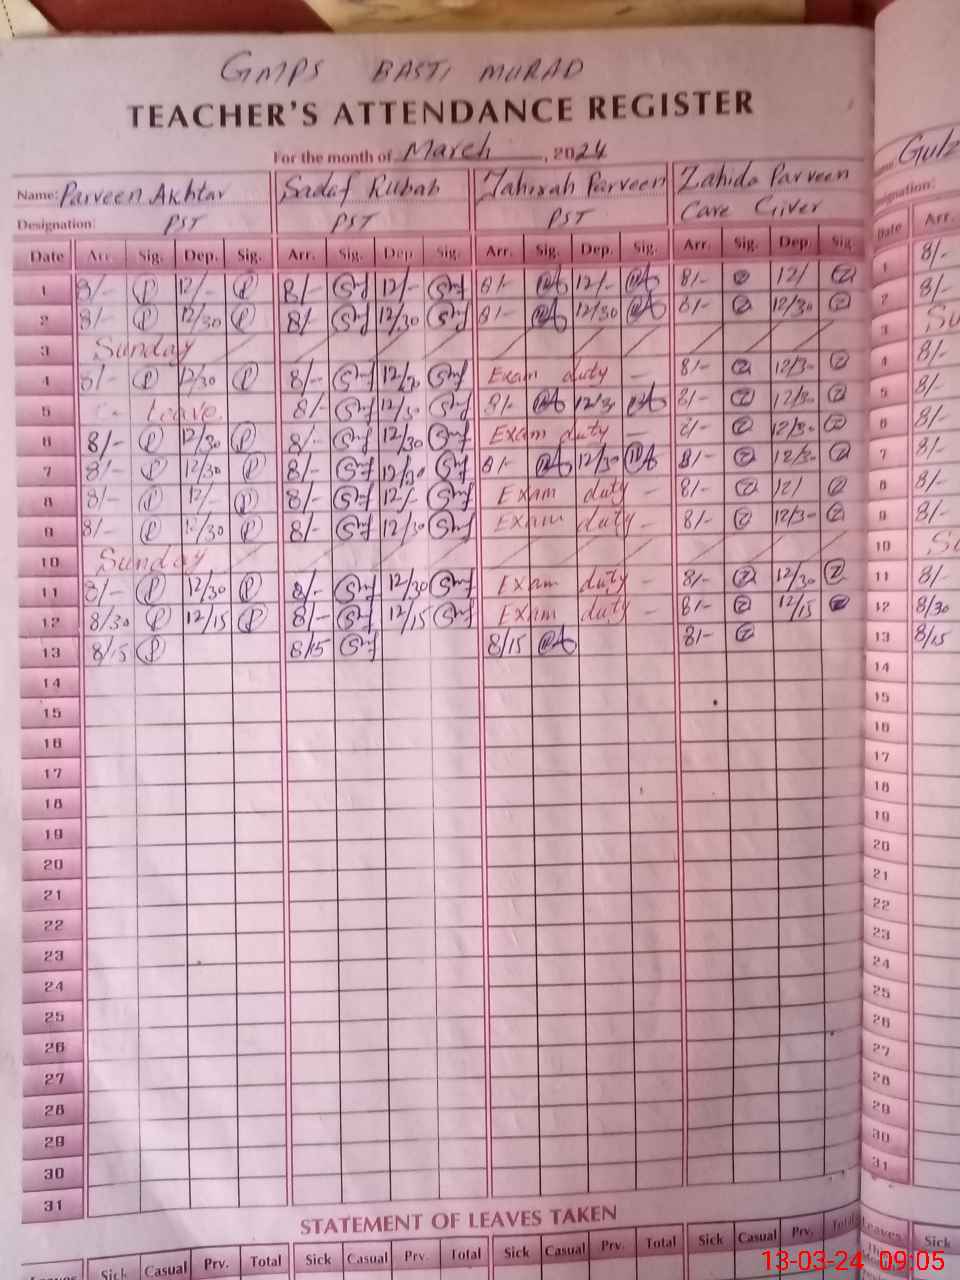 GMPS BASTI MURAD
TEACHER'S ATTENDANCE REGISTER
For the month of March, 2024
Name: Parveen Akhtar Sadaf Rubab Tahirah Parveen Zahida Parveen
Designation: PST PST PST Care Giver
Date Arr. Sig. Dep. Sig. Arr. Sig. Dep Sig. Arr. Sig. Dep. Sig. Arr. Sig. Dep. Sig.
1 8/- P 12/- P 8/- 12/- 8/- 12/- 8/- 2 12/ 2
2 8/- P 12/30 P 8/- 12/30 8/- 12/30 8/- 2 12/30 2
3 Sunday
4 8/- P 12/30 P 8/- 12/30 Exam duty - 8/- 2 12/30 2
5 Leave 8/- 12/30 8/- 12/30 8/- 2 12/30 2
6 8/- P 12/30 P 8/- 12/30 Exam duty - 8/- 2 12/30 2
7 8/- P 12/30 P 8/- 12/30 8/- 12/30 8/- 2 12/30 2
8 8/- P 12/- P 8/- 12/- Exam duty - 8/- 2 12/ 2
9 8/- P 12/30 P 8/- 12/30 Exam duty - 8/- 2 12/30 2
10 Sunday
11 8/- P 12/30 P 8/- 12/30 Exam duty - 8/- 2 12/30 2
12 8/30 P 12/15 P 8/- 12/15 Exam duty - 8/- 2 12/15 2
13 8/15 P 8/15 8/15 8/- 2
14
15
16
17
18
19
20
21
22
23
24
25
26
27
28
29
30
31
STATEMENT OF LEAVES TAKEN
Leaves Sick Casual Prv. Total Sick Casual Prv. Total Sick Casual Prv. Total Sick Casual Prv. Total
Gulz
Designation:
Date Arr.
1 8/-
2 8/-
3 Su
4 8/-
5 8/-
6 8/-
7 8/-
8 8/-
9 8/-
10 Su
11 8/-
12 8/30
13 8/15
14
15
16
17
18
19
20
21
22
23
24
25
26
27
28
29
30
31
Leaves Sick
13-03-24 09:05